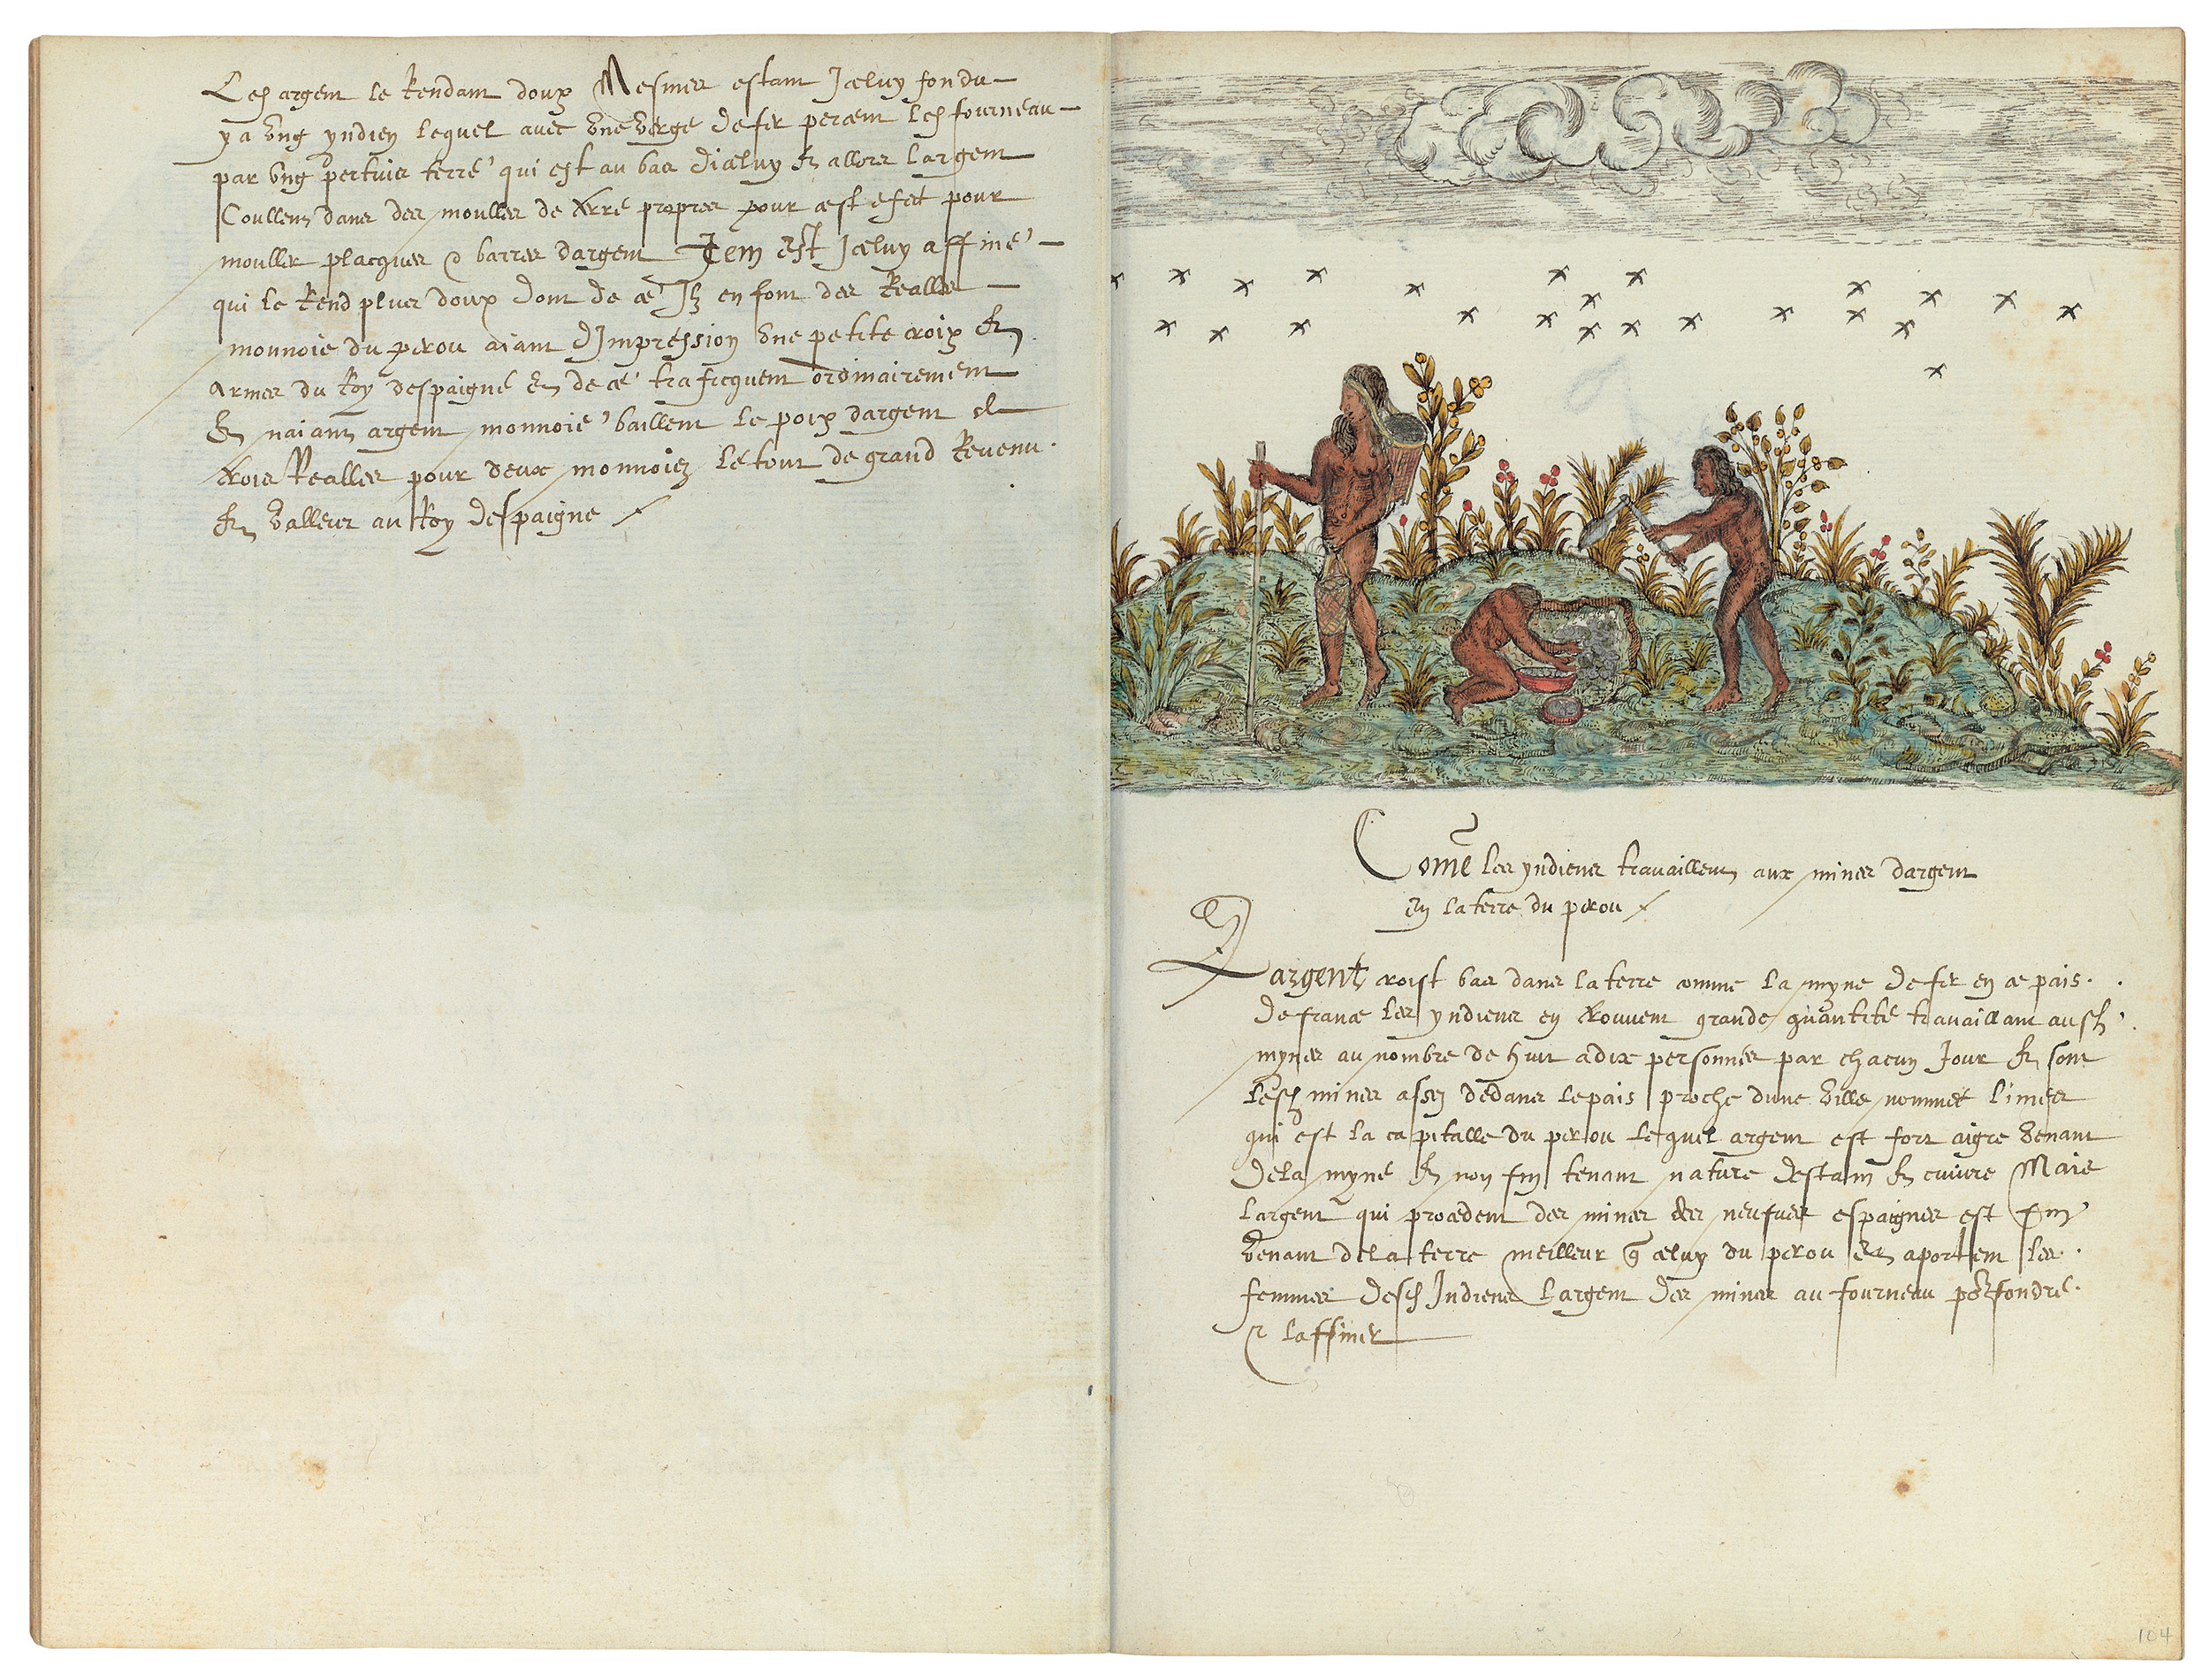 Led argent le Rendant doux Mesmes estant Jceluy fondu
y a ung yndien lequel avec une verge de fer percent led fourneau
par ung pertuis terré qui est au bas diceluy Et allors largent
Coullent dans des moulles de terre propres pour cest efect pour
moullér placques & barres dargent Item Est Jceluy affiné
qui le Rend plus doux dont de ce Jlz en font des Realles
monnoie du perou aiant dJmpression une petite croix Et
armes du Roy despaigne Et de ce traficquent ordinairement
Et naiant argent monnoié baillent le poix dargent de
trois Realles pour deux monnoiez Le tout de grand Revenu
Et valleur au Roy despaigne
Comē les yndiens travaillent aux mines dargent
En la terre du perou
Largent croist bas dans la terre comme la myne de fer en ce pais
de france les yndiens en trouvent grande quantité travaillant ausd
mynes au nombre de huit a dix personnes par chacun Jour Et sont
lesd mines assez dedans le pais proche dune ville nommée limes
qui est la capitalle du perou lequel argent est fort aigre venant
de la myne Et non fin tenant nature destain Et cuivre Mais
largent qui procedent des mines des neufves espaignes est fin
venant de la terre meilleur q̃ celuy du perou Et aportent les
femmes desd Indiens largent des mines au fourneau po͛ fondre
& laffiner
104